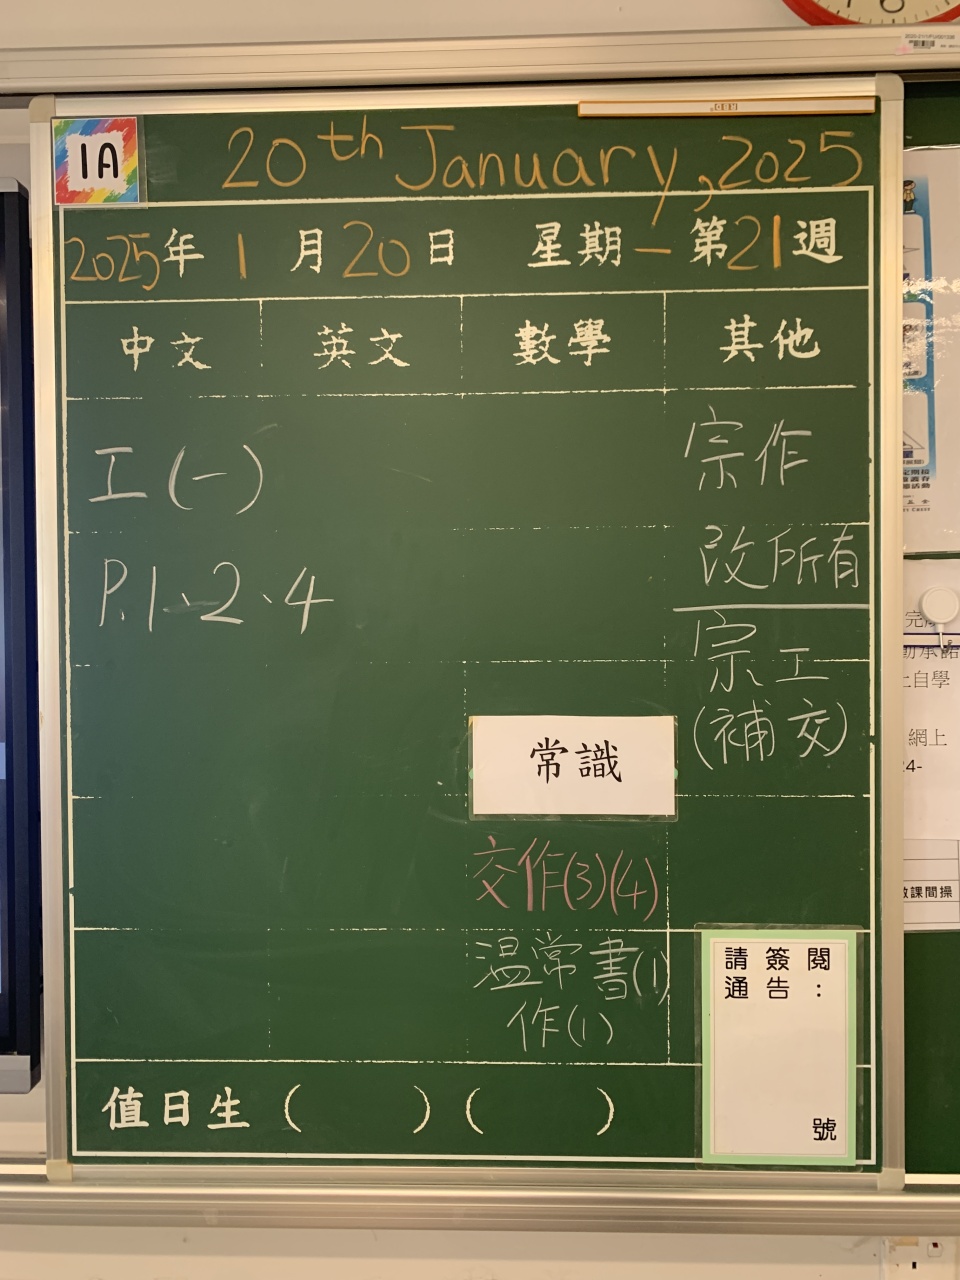 1A
20th January, 2025
2025年1月20日 星期一 第21週
中文 英文 數學 其他
工(一)
P.1、2、4
宗作
改所有
宗工
(補交)
常識
交作(3)(4)
温常書(1)
作(1)
請簽閱
通告：
號
值日生( )( )
完成
動承諾
上自學
網上
24-
做課間操